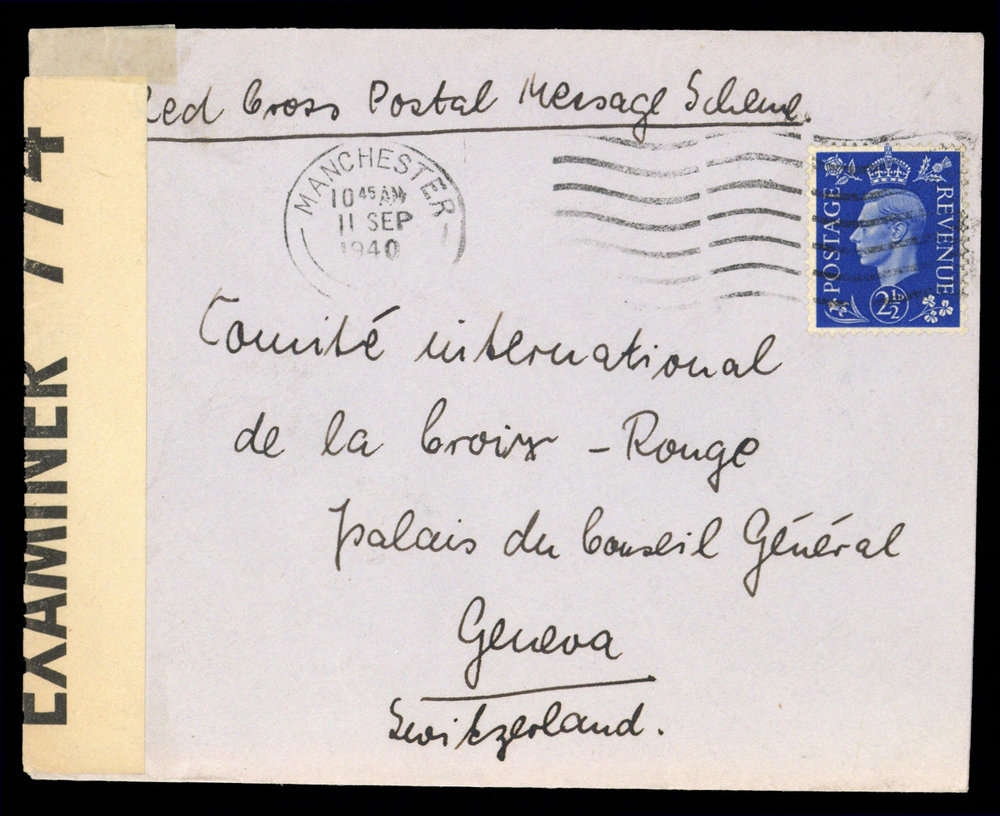 Red Cross Postal Message Scheme.
MANCHESTER
10 45 AM
11 SEP
1940
POSTAGE
REVENUE
2½
Comité international
de la Croix - Rouge
Palais du Conseil Général
Geneva
Switzerland.
EXAMINER 774